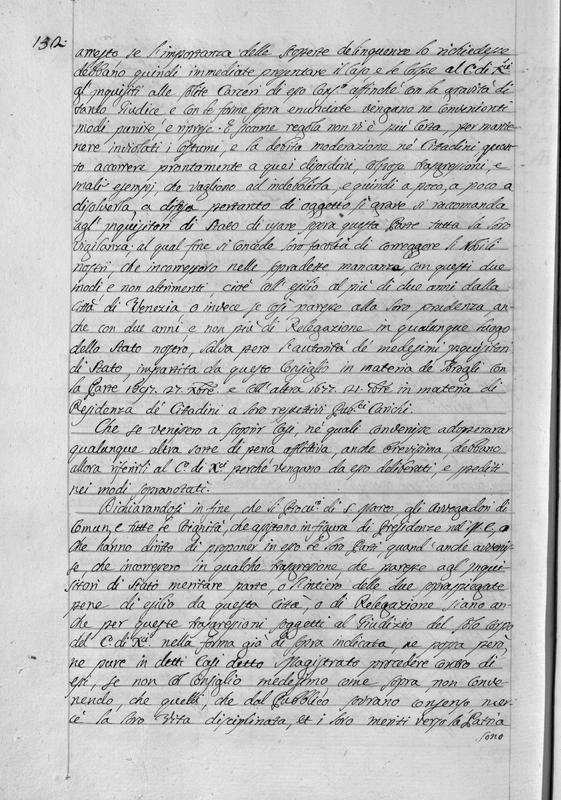 132
arresto se l'importanza delle scoperte delinquenze lo richiedesse
debbano quindi immediate presentare il Caso, e le Carte al C. di Xci
gl'inquisiti alle solite Carceri di esso Consº affinché con la gravità di
tanto Giudice, e con le forme sopra enunciate vengano ne convenienti
modi puniti e ripresi. E siccome regola non vi è più certa, per mante-
nere inviolati i costumi, e la debita moderazione ne' Cittadini, quan-
to accorrere prontamente a quei disordini, trasgressioni, e
mali esempj che vagliono ad indebolirla, e quindi a poco, a poco a
disolverla, a pertanto di oggetto sì grave si raccomanda
agl'inquisitori di Stato di usare sopra questa Parte tutta la loro
vigilanza. al qual fine si concede loro facoltà di correggere li Nobili
nostri, che incorressero nelle sopradette mancanze con questi due
modi e non altrimenti, cioè coll'esilio al più di due anni dalla
Città di Venezia, o invece se così paresse alla loro prudenza, an-
che con due anni, e non più di Relegazione in qualunque luogo
dello Stato nostro, salva però l'autorità de' medesimi inquisitori
di Stato, impartita da questo Consiglio in materia de' Brogli con
la Parte 1697. 27. Xbre. e coll'altra 1677. 21. Xbre in materia di
Residenza de' Cittadini a loro respettivi Pubci Carichi.
Che se venissero a scoprir Casi, ne' quali convenisse adoperarar
qualunque altra sorte di pena afflittiva, anche brevissima debbano
allora riferirli al C. di Xci perché vengano da esso deliberati, e spediti
nei modi sopranotati.
Dichiarandosi in fine, che li Procuri di S. Marco gli Avvogadori di
Comun, e tutte le Dignità, che assistono in figura di Presidenze nel M. C., o
che hanno diritto di proponer in esso le loro Parti, quand'anche avvenis-
se che incorressero in qualche trasgressione che paresse agl'inqui-
sitori di Stato meritare parte, o l'intiero delle due soprapiegate
pene di esilio da questa Città, o di Relegazione siano an-
che per queste trasgressioni soggetti al Giudizio del solo Corpo
del C. di Xci nella forma già di sopra indicata, ne possa però,
ne pure in detti Casi detto Magistrato procedere contro di
essi, se non col Consiglio medesimo come sopra non conve-
nendo, che quelli, che dal Pubblico sortirano consenso mer-
cè la loro vita disciplinata, et i loro meriti verso la Patria
sono